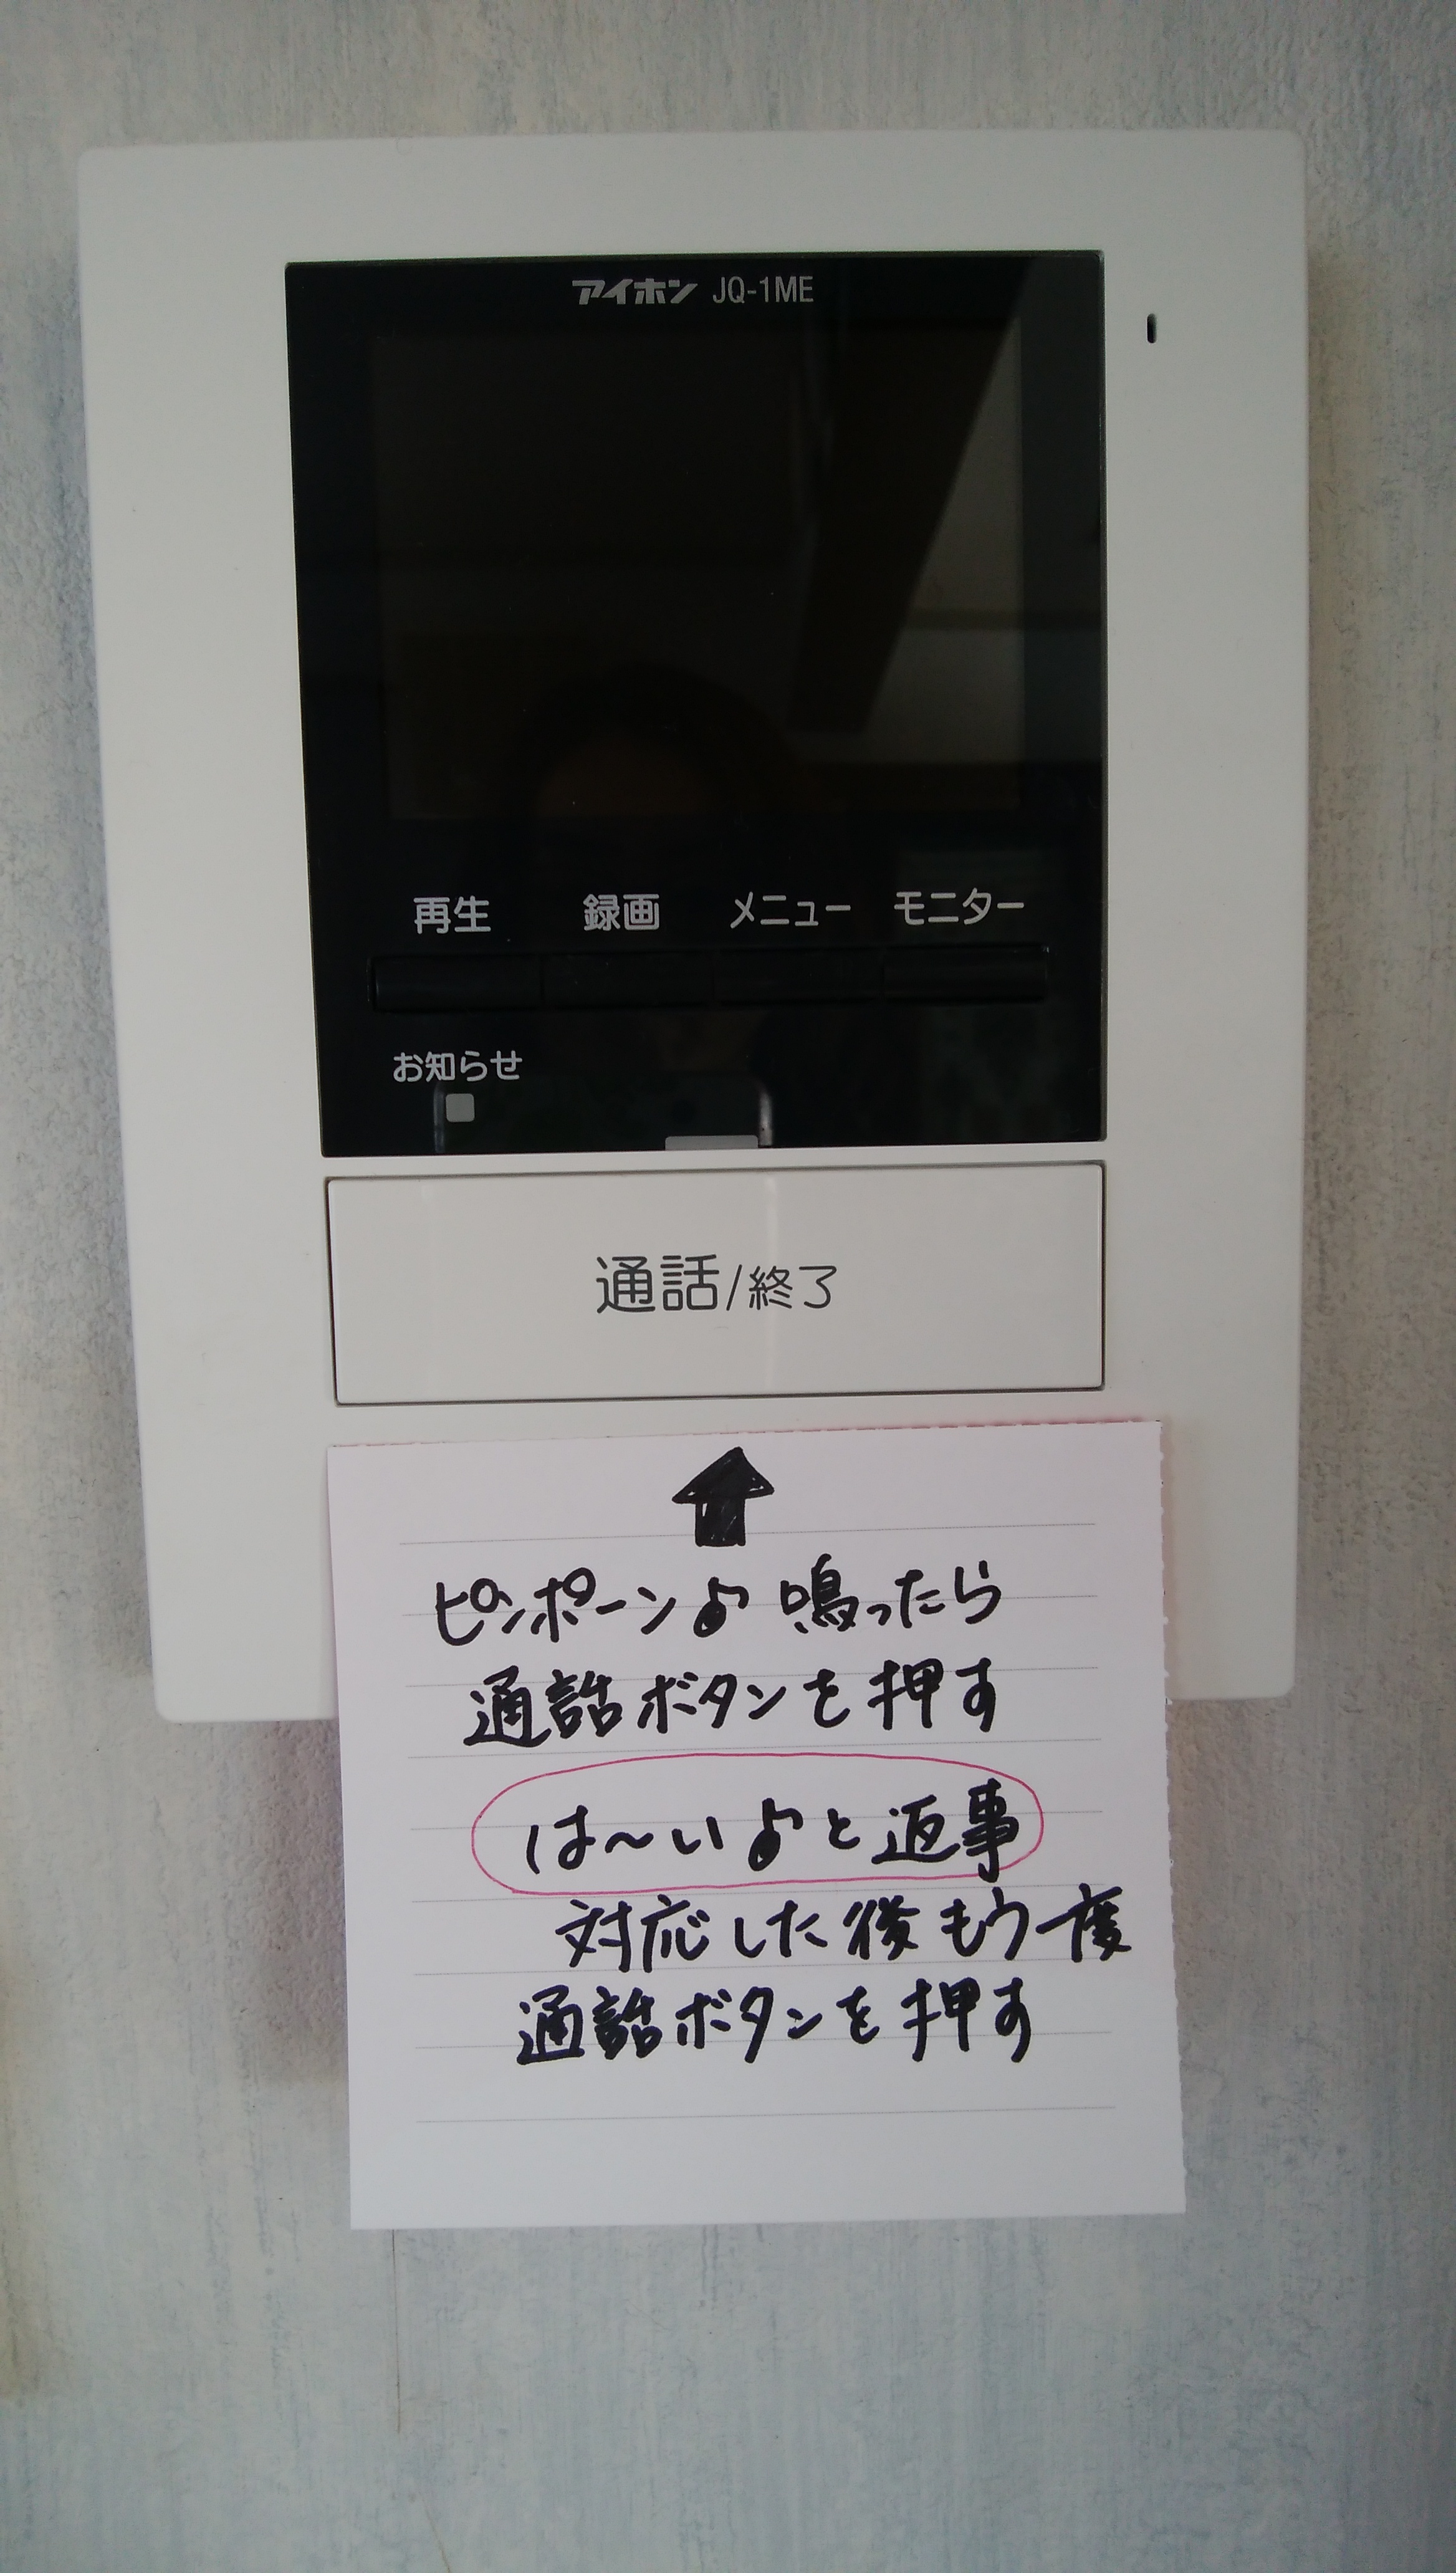 アイホン JQ-1ME
再生 録画 メニュー モニター
お知らせ
通話/終了
ピンポーン♪ 鳴ったら
通話ボタンを押す
は〜い♪と返事
対応した後もう一度
通話ボタンを押す